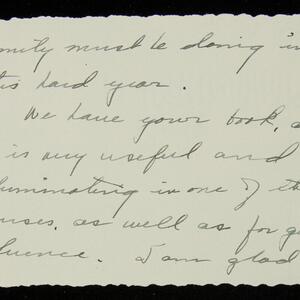 mily must be doing in
this hard year.
We have your book, a
is very useful and
luminating in one of the
uses, as well as for ge
luence. I am glad